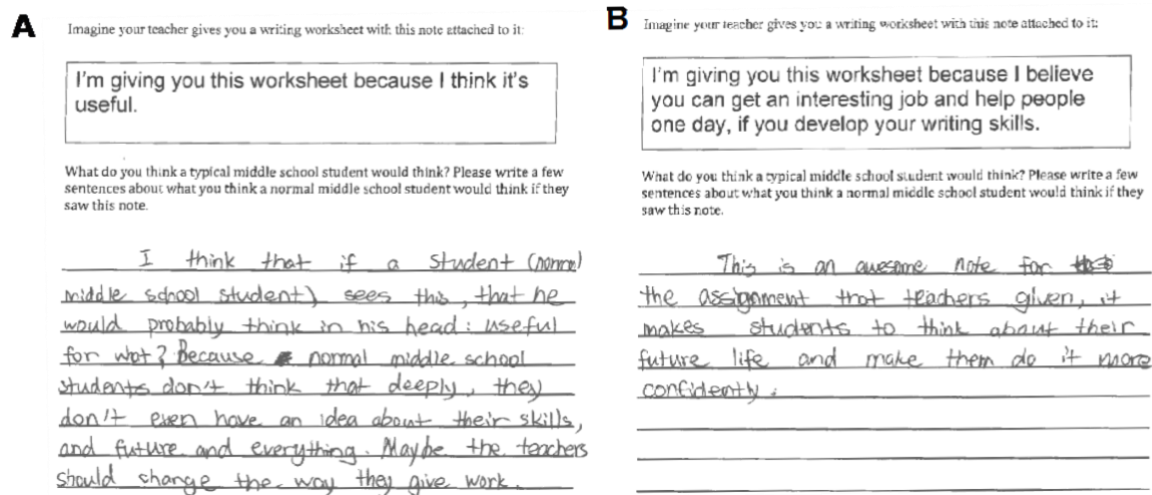 A
Imagine your teacher gives you a writing worksheet with this note attached to it:
I'm giving you this worksheet because I think it's
useful.
What do you think a typical middle school student would think? Please write a few
sentences about what you think a normal middle school student would think if they
saw this note.
I think that if a student (normal
middle school student) sees this, that he
would probably think in his head: useful
for wot? Because normal middle school
students don't think that deeply, they
don't even have an idea about their skills,
and future and everything. Maybe the teachers
should change the way they give work.
B
Imagine your teacher gives you a writing worksheet with this note attached to it:
I'm giving you this worksheet because I believe
you can get an interesting job and help people
one day, if you develop your writing skills.
What do you think a typical middle school student would think? Please write a few
sentences about what you think a normal middle school student would think if they
saw this note.
This is an awesome note for
the assignment that teachers given, it
makes students to think about their
future life and make them do it more
confidently.